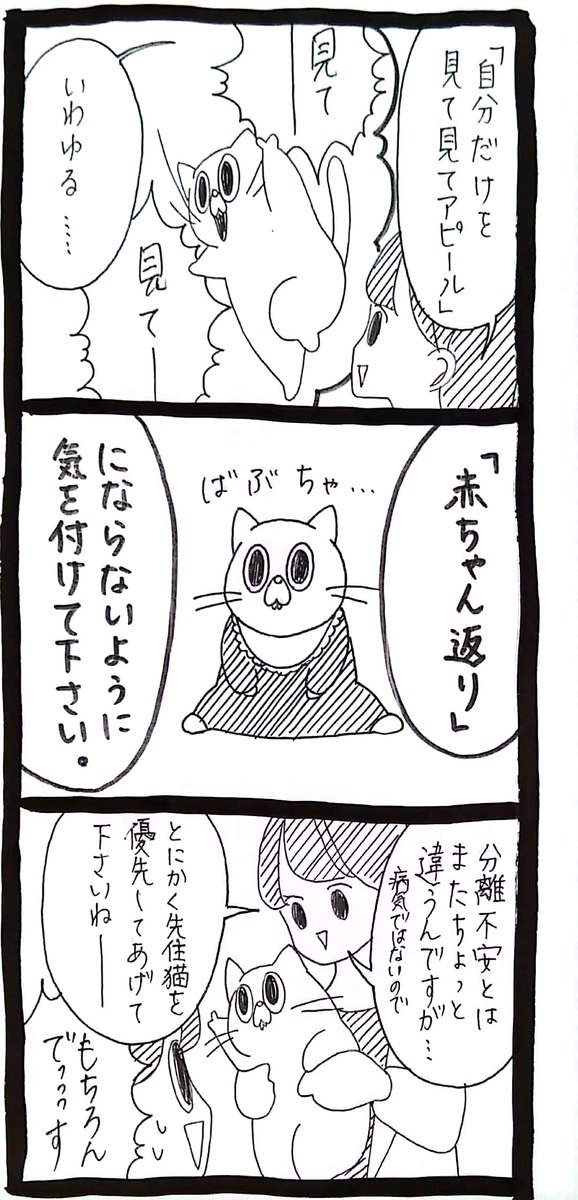 「自分だけを
見て見てアピール」
見て
見てー
いわゆる……
「赤ちゃん返り」
ばぶちゃ…
にならないように
気を付けて下さい。
分離不安とは
またちょっと
違うんですが…
病気ではないので
とにかく先住猫を
優先してあげて
下さいねーー
もちろん
でぅぅぅす